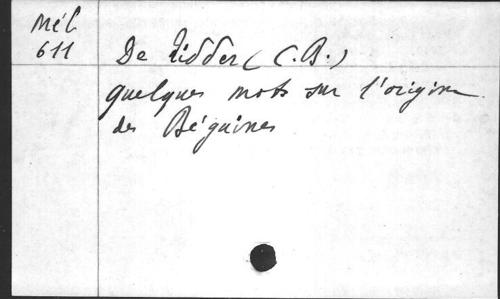 Mél
611
De Ridder (C.B.)
quelques mots sur l'origine
des Béguines